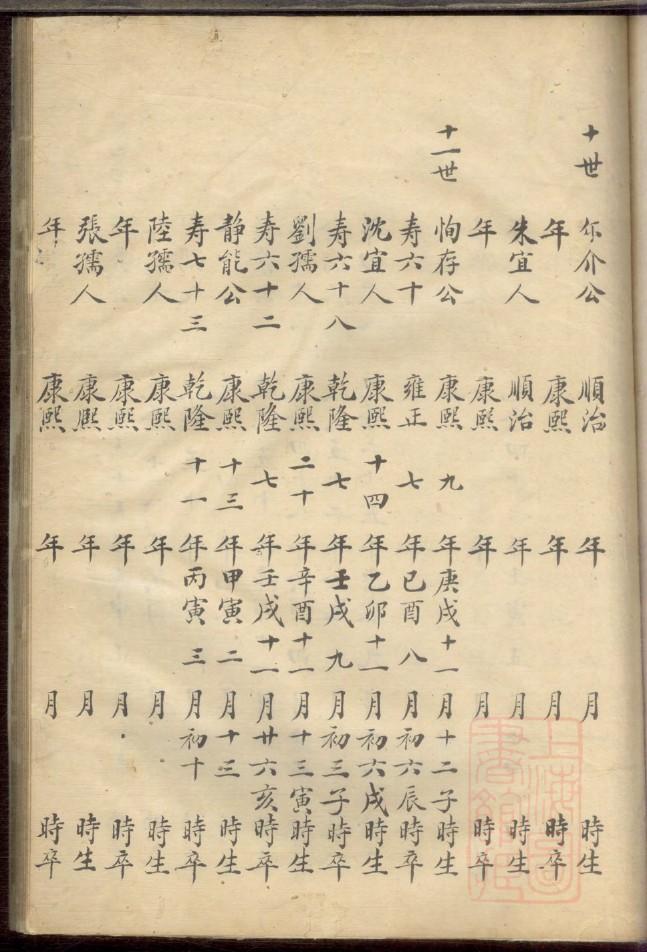 十世
尔介公 順治 年 月 時生
年 康熙 年 月 時卒
朱宜人 順治 年 月 時生
年 康熙 年 月 時卒
十一世
恂存公 康熙 九 年庚戌十一月十二子時生
寿六十 雍正 七 年己酉八月初六辰時卒
沈宜人 康熙 十四 年乙卯十一月初六戌時生
寿六十八 乾隆 七 年壬戌九月初三子時卒
劉孺人 康熙 二十 年辛酉十一月十三寅時生
寿六十二 乾隆 七 年壬戌十一月廿六亥時卒
静能公 康熙 十三 年甲寅二月十三時生
寿七十三 乾隆 十一 年丙寅三月初十時卒
陸孺人 康熙 年 月 時生
年 康熙 年 月 時卒
張孺人 康熙 年 月 時生
年 康熙 年 月 時卒
上海圖書館藏